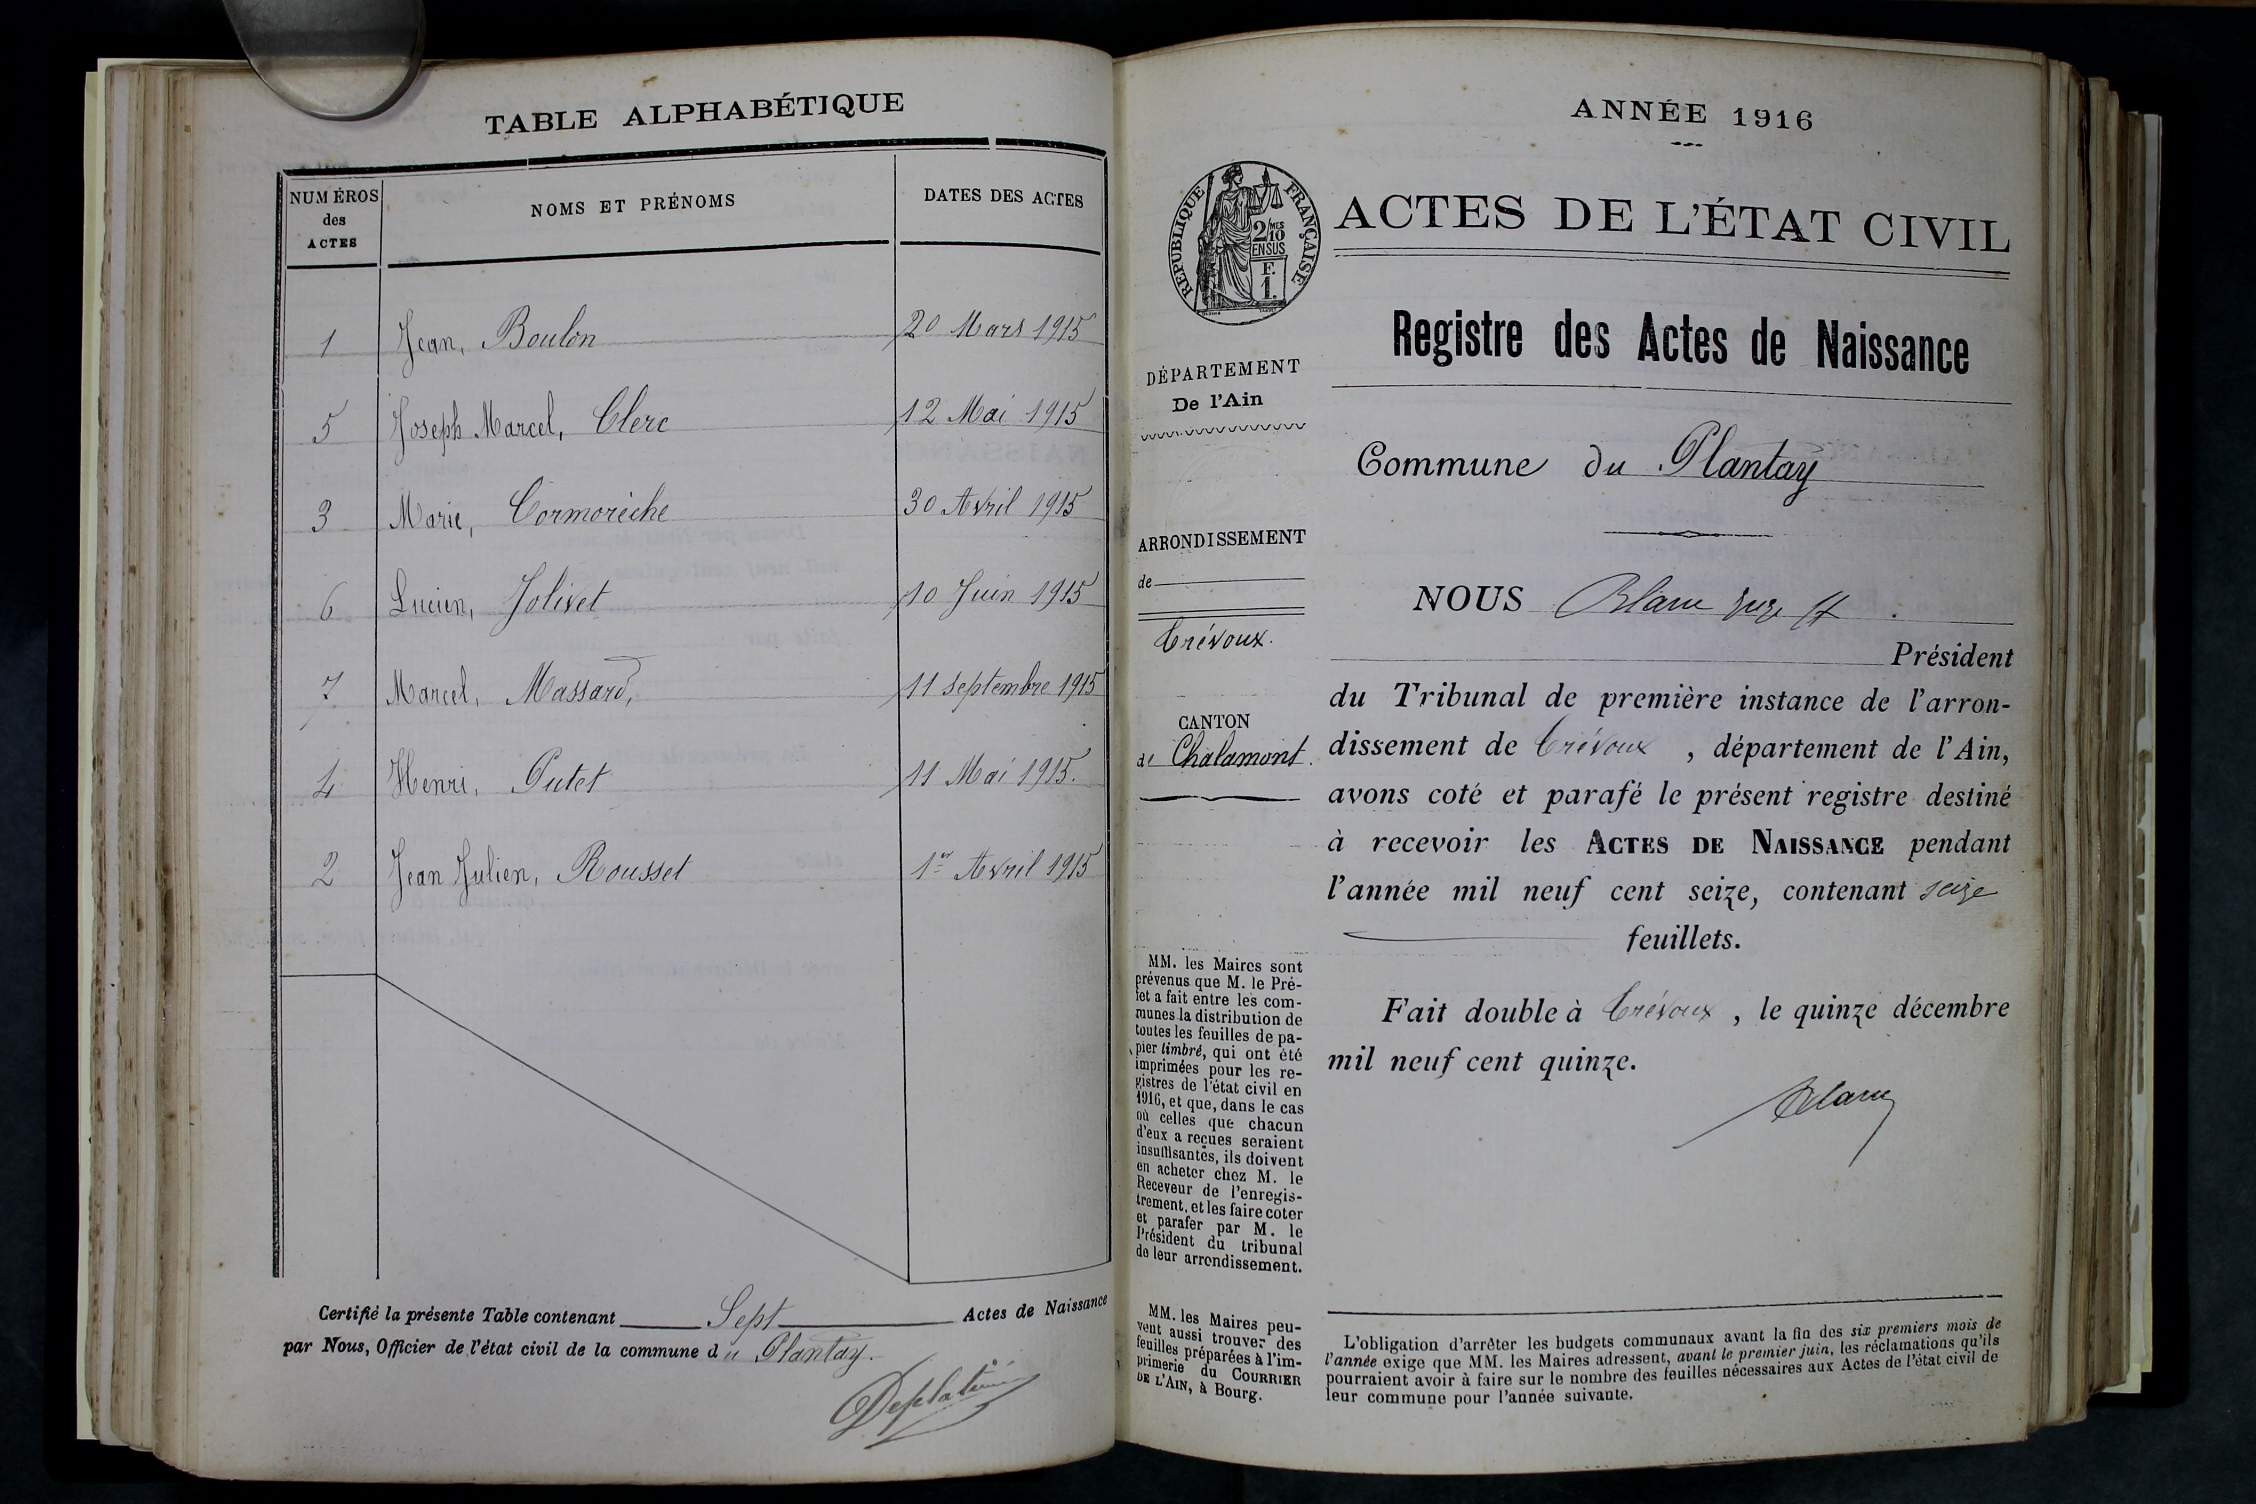 TABLE ALPHABÉTIQUE
NUMÉROS des ACTES
NOMS ET PRÉNOMS
DATES DES ACTES
1 Jean, Boulon 20 Mars 1915
5 Joseph Marcel, Clerc 12 Mai 1915
3 Marie, Cormorèche 30 Avril 1915
6 Lucien, Jolivet 10 Juin 1915
7 Marcel, Massard, 11 septembre 1915
4 Henri, Putet 11 Mai 1915.
2 Jean Julien, Rousset 1er Avril 1915
Certifié la présente Table contenant Sept Actes de Naissance
par Nous, Officier de l'état civil de la commune du Plantay.
ANNÉE 1916
RÉPUBLIQUE FRANÇAISE
2/10 MES
EN SUS
F.
1.
ACTES DE L'ÉTAT CIVIL
Registre des Actes de Naissance
DÉPARTEMENT
De l'Ain
ARRONDISSEMENT
de
Trévoux.
CANTON
de Chalamont.
MM. les Maires sont
prévenus que M. le Pré-
fet a fait entre les com-
munes la distribution de
toutes les feuilles de pa-
pier timbré, qui ont été
imprimées pour les re-
gistres de l'état civil en
1916, et que, dans le cas
où celles que chacun
d'eux a reçues seraient
insuffisantes, ils doivent
en acheter chez M. le
Receveur de l'enregis-
trement, et les faire coter
et parafer par M. le
Président du tribunal
de leur arrondissement.
MM. les Maires peu-
vent aussi trouver des
feuilles préparées à l'im-
primerie du COURRIER
DE L'AIN, à Bourg.
Commune du Plantay
NOUS Blanc juge
Président
du Tribunal de première instance de l'arron-
dissement de Trévoux, département de l'Ain,
avons coté et parafé le présent registre destiné
à recevoir les ACTES DE NAISSANCE pendant
l'année mil neuf cent seize, contenant seize
feuillets.
Fait double à Trévoux, le quinze décembre
mil neuf cent quinze.
Blanc
L'obligation d'arrêter les budgets communaux avant la fin des six premiers mois de
l'année exige que MM. les Maires adressent, avant le premier juin, les réclamations qu'ils
pourraient avoir à faire sur le nombre des feuilles nécessaires aux Actes de l'état civil de
leur commune pour l'année suivante.